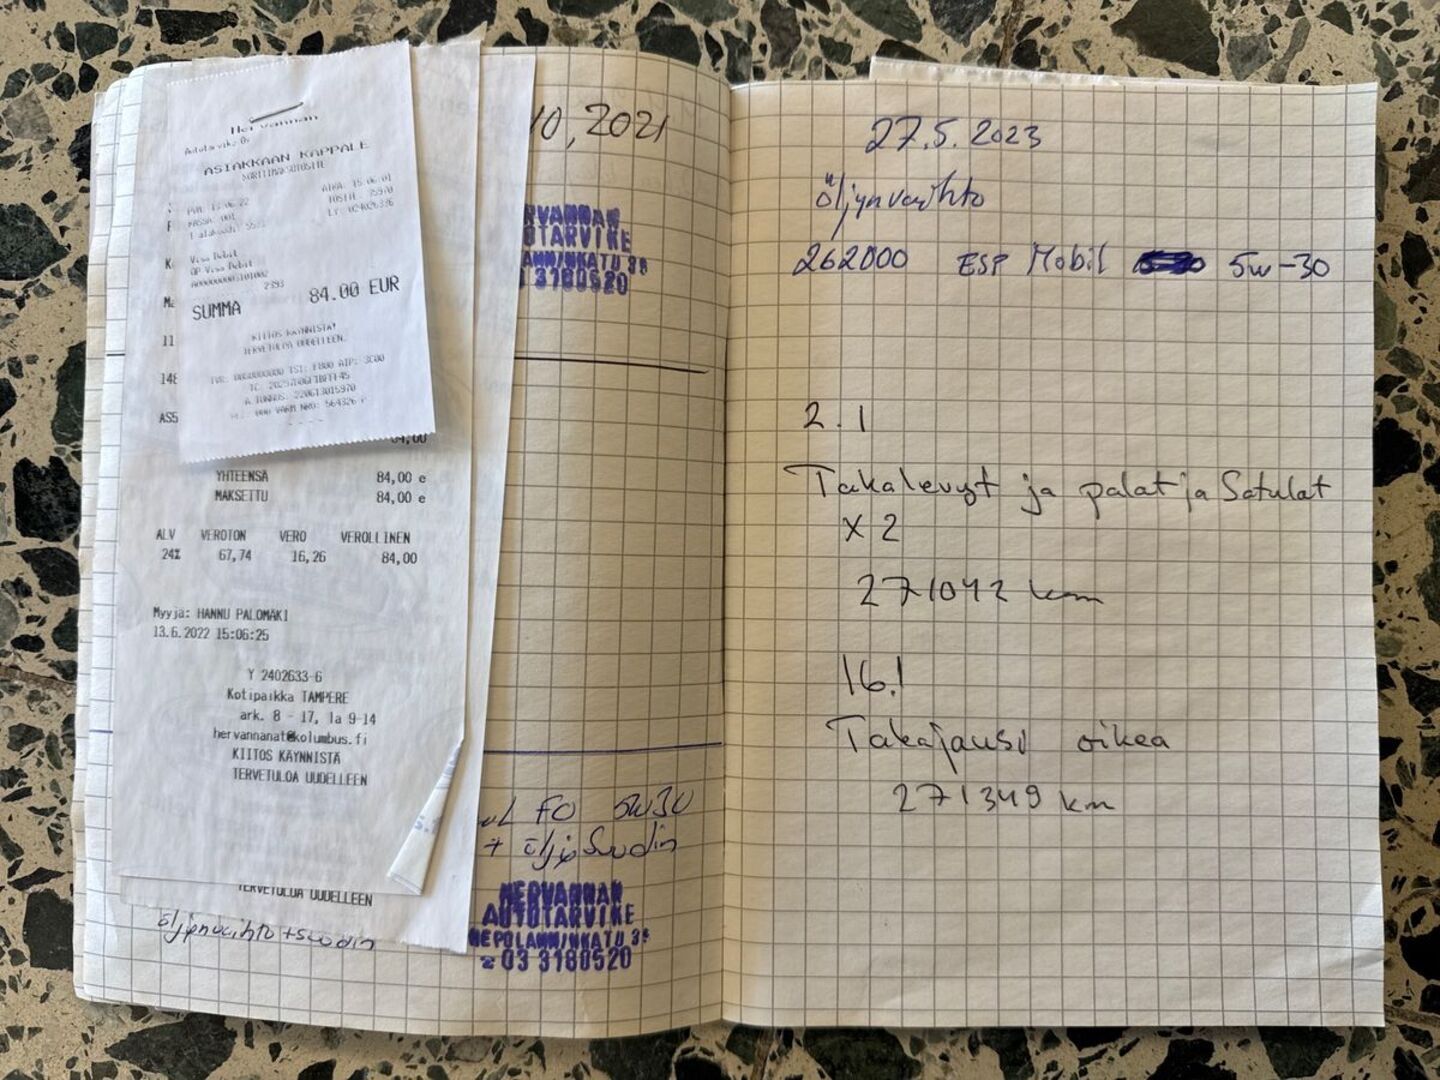 Hervannan
Autotarvike Oy
ASIAKKAAN KAPPALE
KORTTIMAKSUTOSITE
AIKA: 15.06.01
PVM: 13.06.22
KASSA: 001
Visa Debit
OP Visa Debit
2393
SUMMA 84.00 EUR
KIITOS KÄYNNISTÄ!
TERVETULOA UUDELLEEN.
K
11
148
AS5
84,00
YHTEENSÄ 84,00 e
MAKSETTU 84,00 e
ALV VEROTON VERO VEROLLINEN
24% 67,74 16,26 84,00
Myyjä: HANNU PALOMÄKI
13.6.2022 15:06:25
Y 2402633-6
Kotipaikka TAMPERE
ark. 8 - 17, la 9-14
hervannanat@kolumbus.fi
KIITOS KÄYNNISTÄ
TERVETULOA UUDELLEEN
TERVETULOA UUDELLEEN
öljynvaihto + suodin
10,2021
RVANNAN
OTARVIKE
ANNINKATU 36
3180520
FO 5W30
+ öljysuodin
HERVANNAN
AUTOTARVIKE
NEPOLANNINKATU 36
☎ 03 3180520
27.5.2023
öljynvaihto
262000 ESP Mobil 5w-30
2.1
Takalevyt ja palat ja Satulat
x 2
271042 km
16.1
Takajousi oikea
271349 km